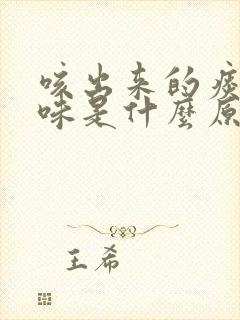 咳出来的痰
味是什麼原
王希